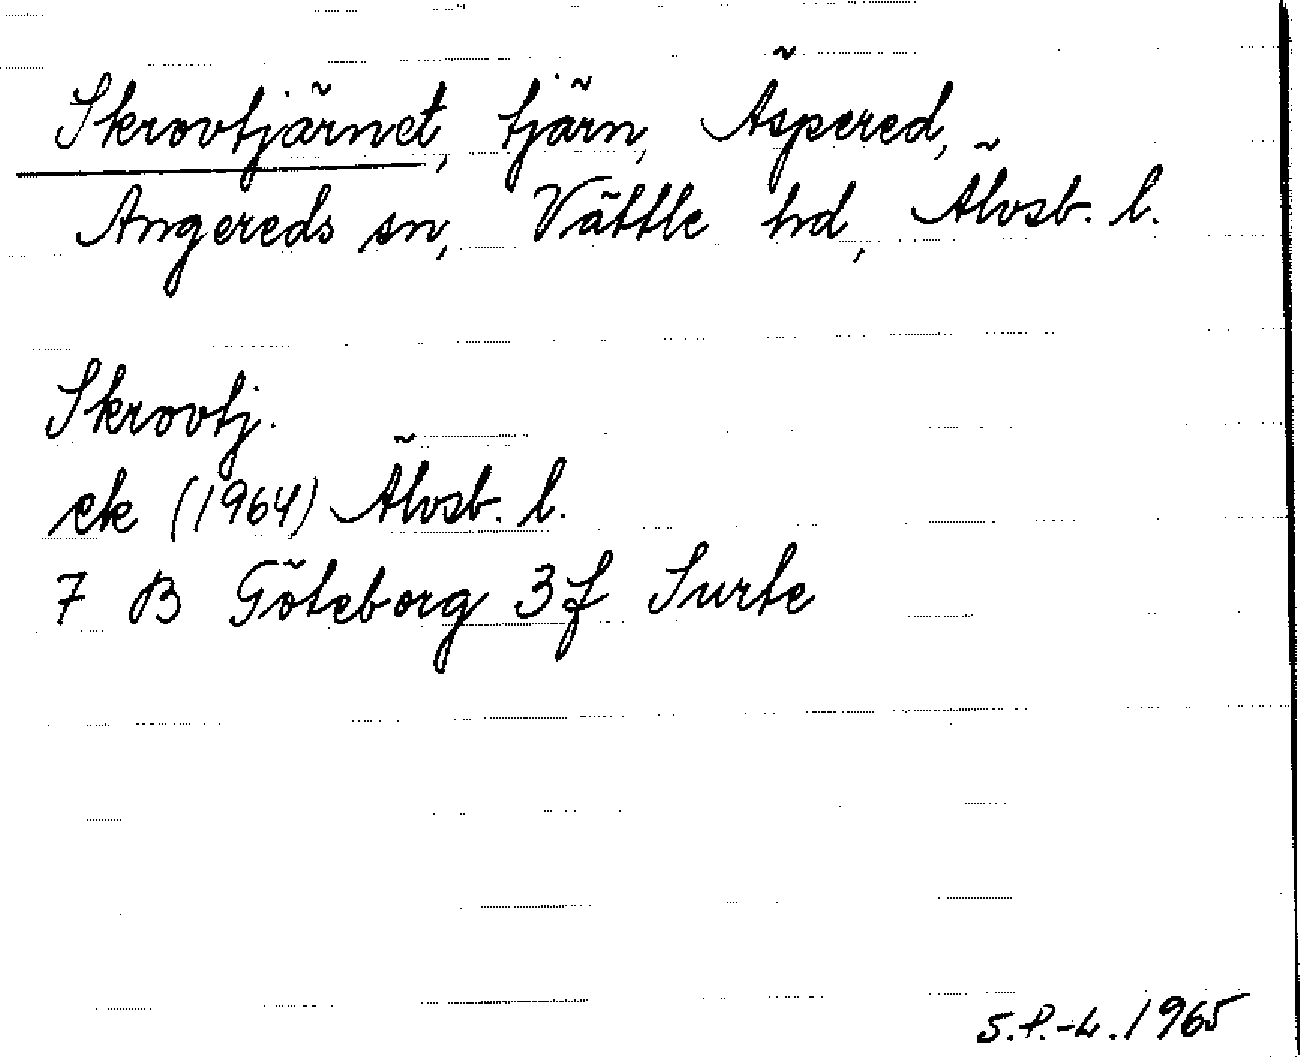 Skrovtjärnet, tjärn, Äspered,
Angereds sn, Vättle hd, Älvsb. l.
Skrovtj.
ek (1964) Älvsb. l.
7 B Göteborg 3f Surte
S.P.-L. 1965